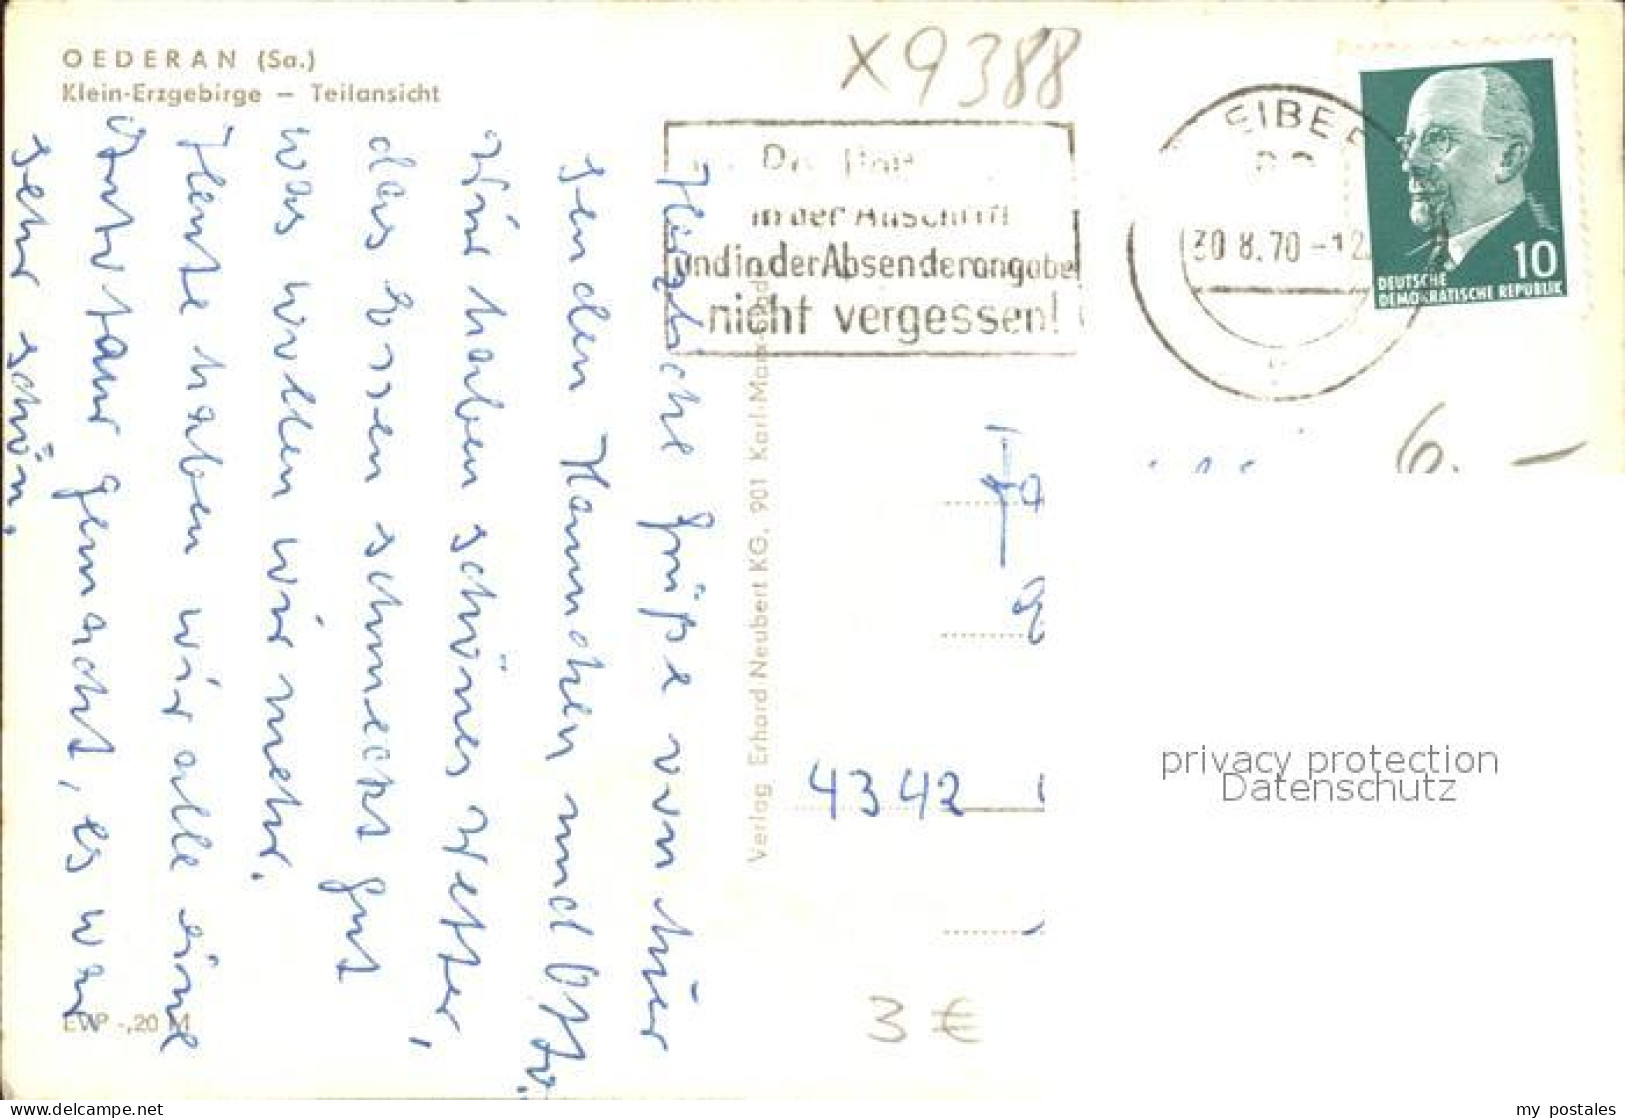 OEDERAN (Sa.)
Klein-Erzgebirge – Teilansicht
X9388
in der Anschrift
und in der Absenderangabe
nicht vergessen!
30.8.70-12
10
DEUTSCHE
DEMOKRATISCHE REPUBLIK
6.–
Herzliche Grüße von hier
senden Hannchen und
Wir haben schönes Wetter,
das Essen schmeckt gut,
was wollen wir mehr.
Heute haben wir alle eine
gemacht, es war
sehr schön.
Verlag Erhard Neubert KG, 901 Karl-Marx-Stadt
4342
privacy protection
Datenschutz
EVP -,20 M
3 €
my postales
www.delcampe.net